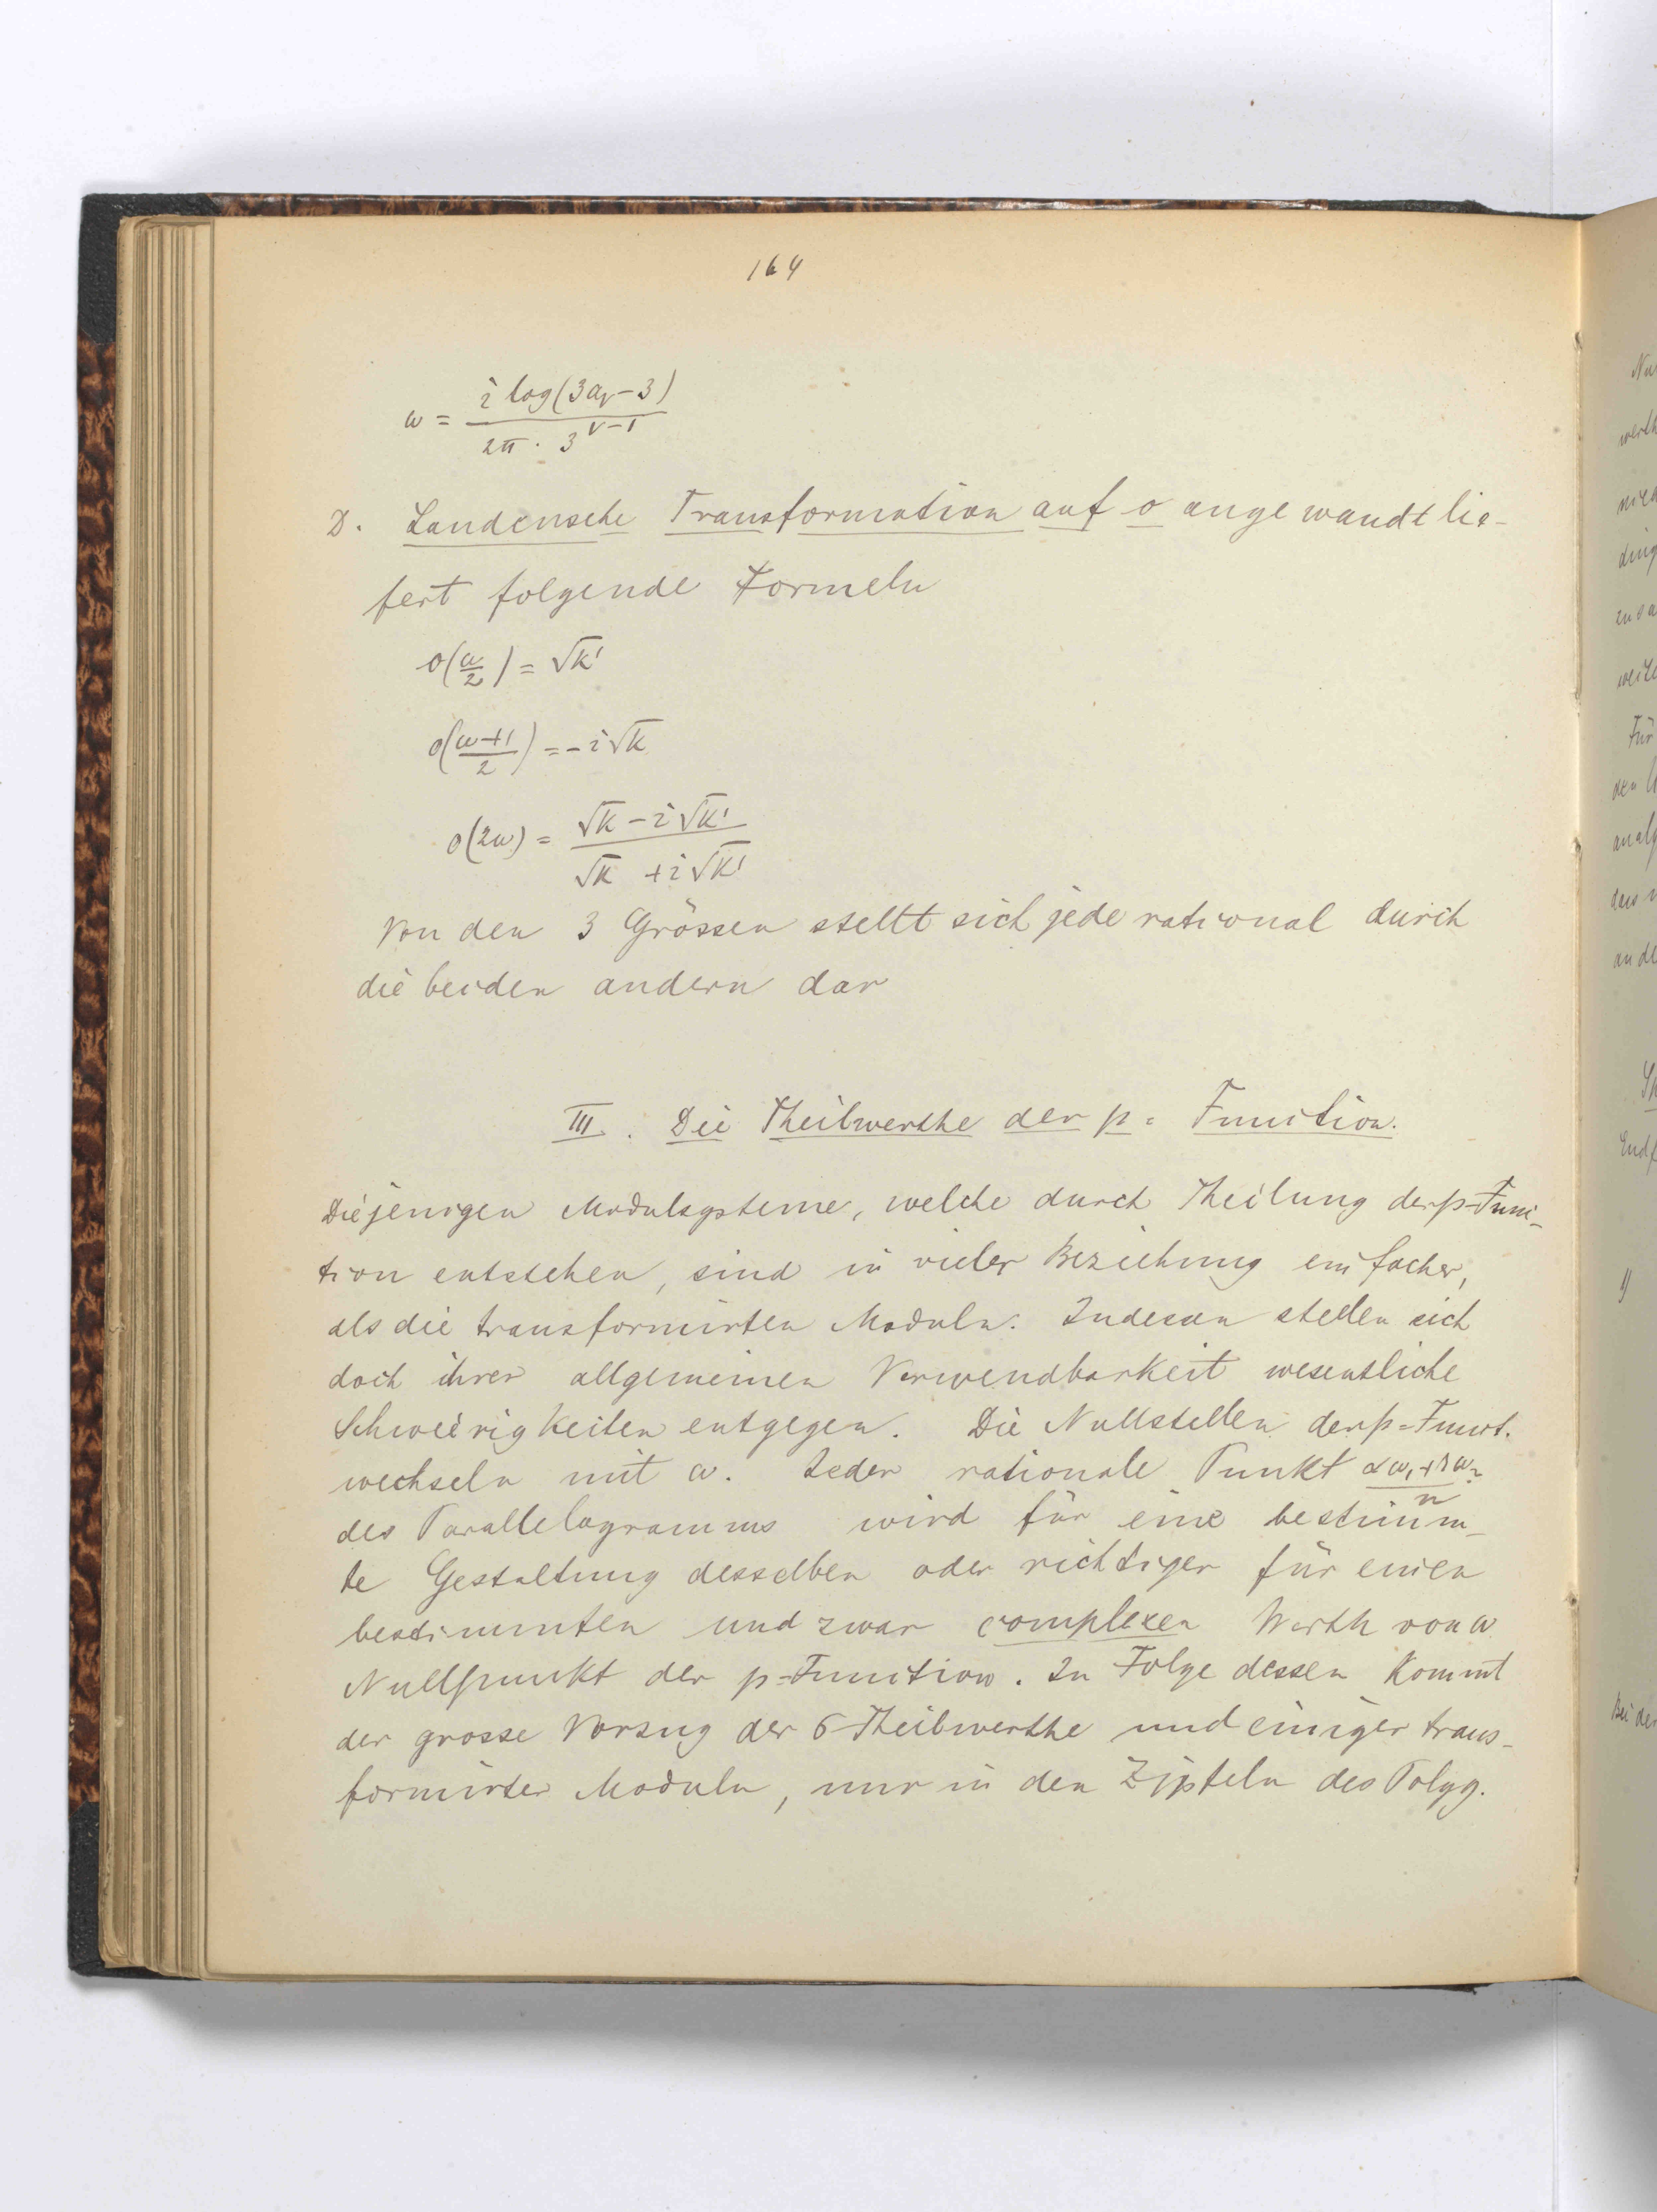 164
ω = i log(3aᵥ-3) / 2π · 3^(ν-1)
D. Landensche Transformation auf o angewandt lie-
fert folgende Formeln
o(ω/2) = √k'
o((ω+1)/2) = -i√k
o(2ω) = (√k - i√k') / (√k + i√k')
Von den 3 Grössen stellt sich jede rational durch
die beiden andern dar
III. Die Theilwerthe der p = Function.
Diejenigen Modulsysteme, welche durch Theilung der p-Func-
tion entstehen, sind in vieler Beziehung einfacher,
als die transformirten Moduln. Indessen stellen sich
doch ihrer allgemeinen Verwendbarkeit wesentliche
Schwierigkeiten entgegen. Die Nullstellen der p-Funct.
wechseln mit ω. Jeder rationale Punkt (αω₁+βω₂)/n
des Parallelogramms wird für eine bestimm-
te Gestaltung desselben oder richtiger für einen
bestimmten und zwar complexen Werth von ω
Nullpunkt der p-Function. In Folge dessen kommt
der grosse Vorzug der σ Theilwerthe und einiger trans-
formirter Moduln, nur in den Zipfeln des Polyg.